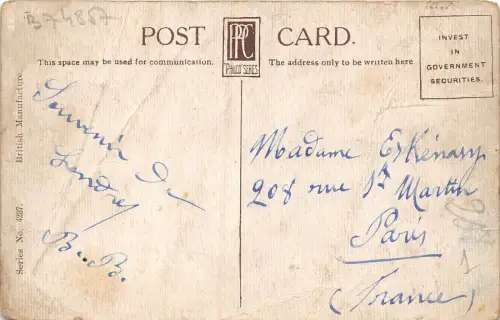 B74887
POST CARD.
PPC
PHOCO SERIES
This space may be used for communication.
The address only to be written here.
INVEST
IN
GOVERNMENT
SECURITIES.
Series No. 4227. British Manufacture
Souvenir De
Londres
B. B.
Madame Eskénasy
208 rue St Martin
Paris
(France)